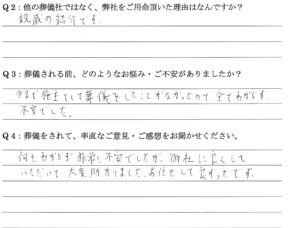 Q2：他の葬儀社ではなく、弊社をご用命頂いた理由はなんですか？
親戚の紹介です.
Q3：葬儀される前、どのようなお悩み・ご不安がありましたか？
今まで施主として葬儀をしたことがなかったので全てわからず、
不安でした。
Q4：葬儀をされて、率直なご意見・ご感想をお聞かせください。
何もわからず非常に不安でしたが、御社に良くして
いただいて大変助かりました。お任せして良かったです。